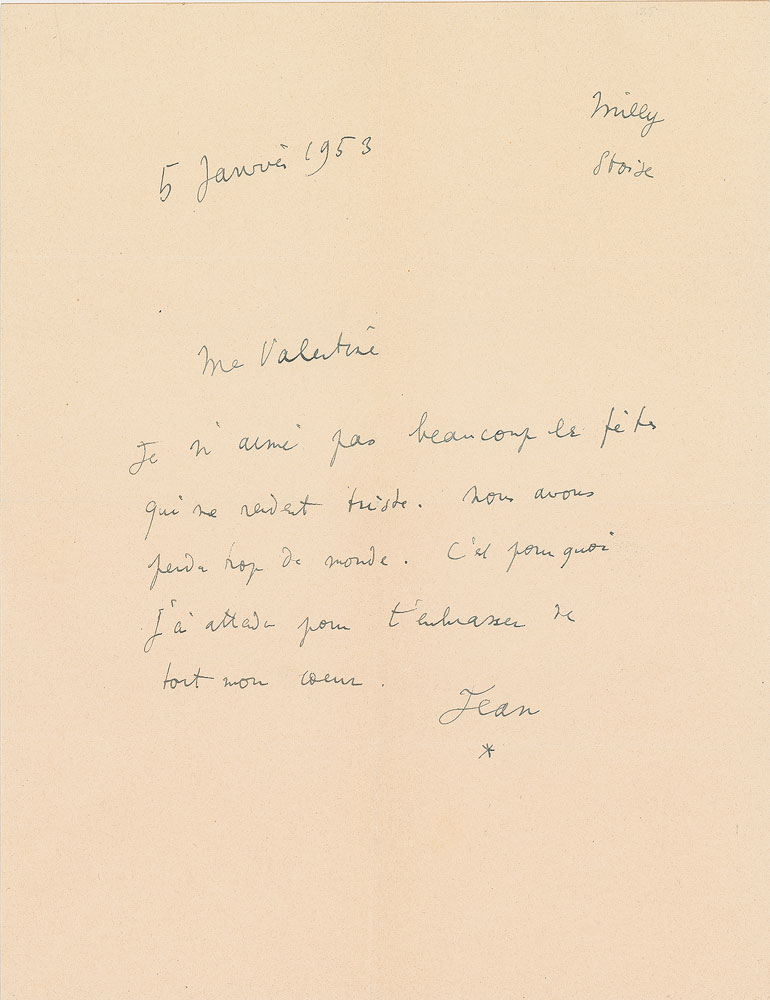 Milly
S/Oise
5 Janvier 1953
Ma Valentine
Je n'aime pas beaucoup les fêtes
qui me rendent triste. Nous avons
perdu trop de monde. C'est pourquoi
j'ai attendu pour t'embrasser de
tout mon coeur.
Jean
*